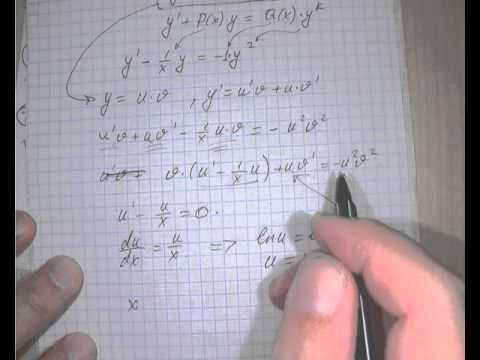 y' + P(x)y = Q(x)·y^k
y' - 1/x y = -1·y^2
y = u·v , y' = u'v + u·v'
u'v + uv' - 1/x u·v = -u^2v^2
v·(u' - 1/x u) + uv' = -u^2v^2
u' - u/x = 0
du/dx = u/x => ln u =
u =
x